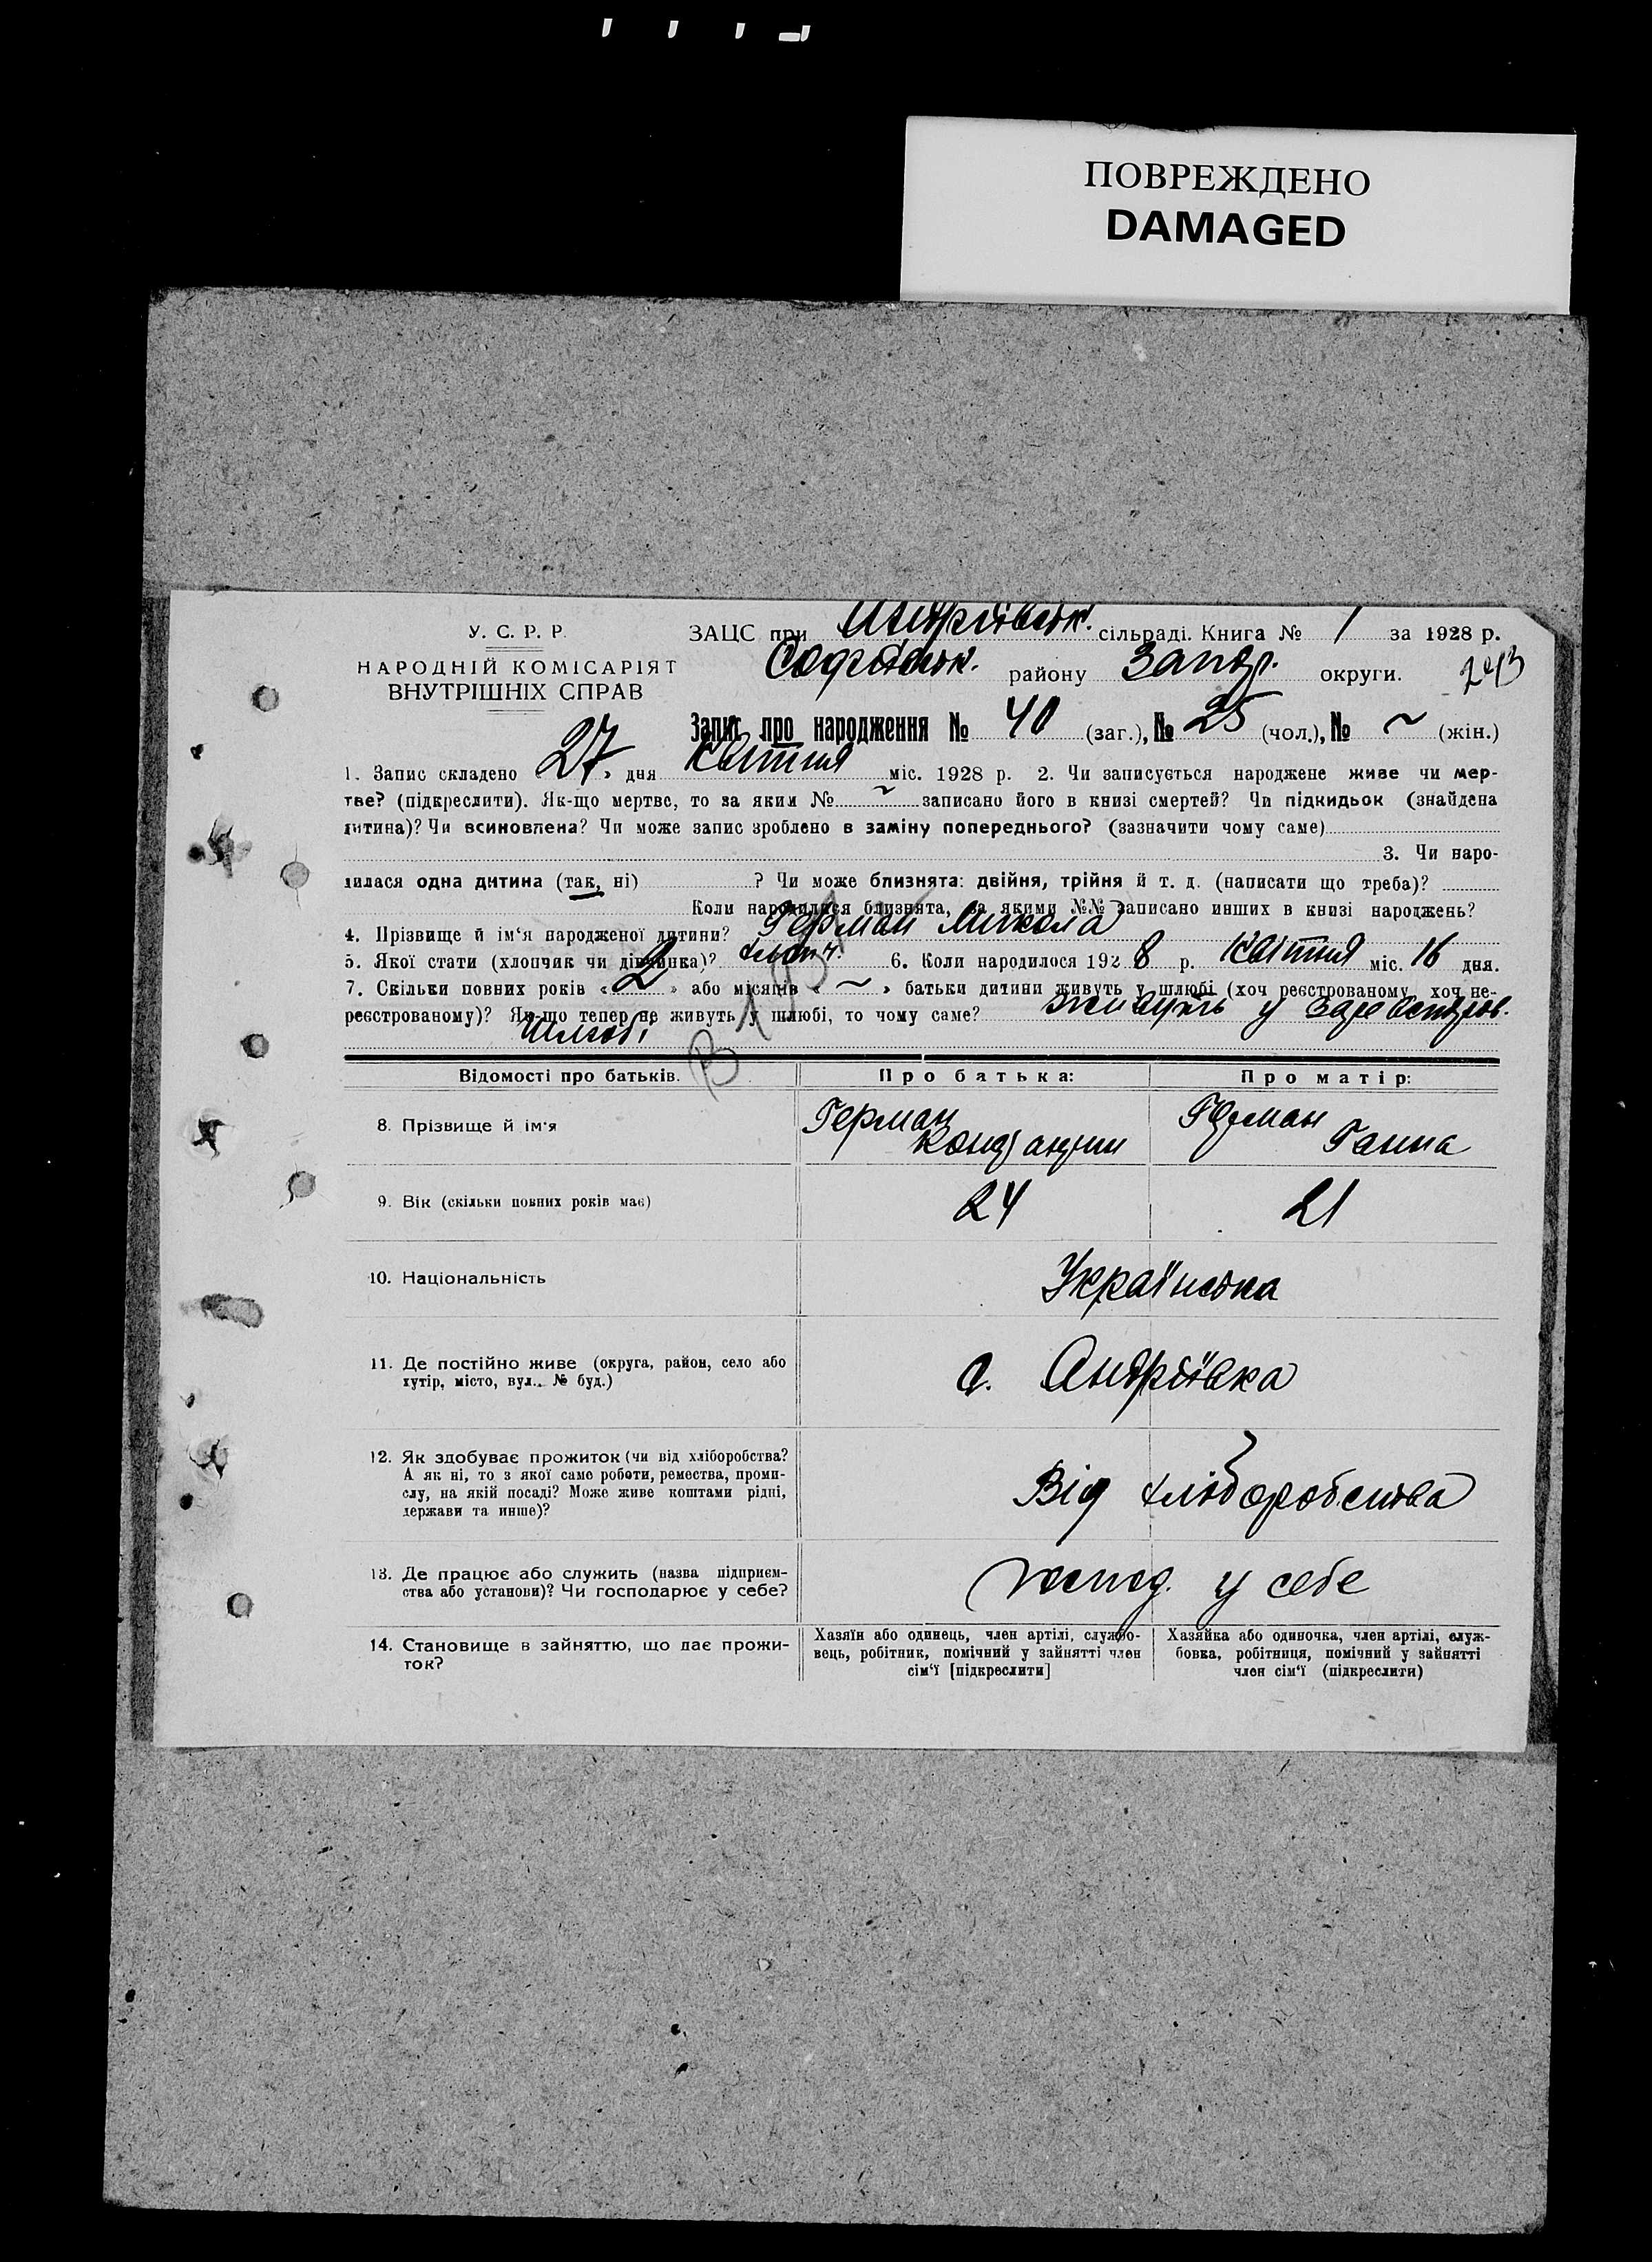 ПОВРЕЖДЕНО
DAMAGED
У. С. Р. Р.
НАРОДНІЙ КОМІСАРІЯТ
ВНУТРІШНІХ СПРАВ
ЗАЦС при Андріївськ. сільраді. Книга № 1 за 1928 р.
Софіївськ. району Запор. округи. 243
Запис про народження № 40 (заг.), № 25 (чол.), № ~ (жін.)
1. Запис складено 27 » дня Квітня міс. 1928 р. 2. Чи записується народжене живе чи мер-
тве? (підкреслити). Як-що мертве, то за яким № ~ записано його в книзі смертей? Чи підкидьок (знайдена
дитина)? Чи всиновлена? Чи може запис зроблено в заміну попереднього? (зазначити чому саме)
3. Чи наро-
дилася одна дитина (так, ні) ? Чи може близнята: двійня, трійня й т. д. (написати що треба)?
Коли народилися близнята, за якими №№ записано инших в книзі народжень?
4. Прізвище й ім‘я народженої дитини? Герман Микола
5. Якої стати (хлопчик чи дівчинка)? хлопч. 6. Коли народилося 1928 р. Квітня міс. 16 дня.
7. Скільки повних років « 2 » або місяців « ~ » батьки дитини живуть у шлюбі (хоч реєстрованому, хоч не-
реєстрованому)? Як-що тепер не живуть у шлюбі, то чому саме? живуть у
шлюбі
Відомості про батьків.
Про батька:
Про матір:
8. Прізвище й ім‘я
Герман
Герман
Ганна
9. Вік (скільки повних років має)
24
21
10. Національність
Українська
11. Де постійно живе (округа, район, село або
хутір, місто, вул., № буд.)
с. Андріївка
12. Як здобуває прожиток (чи від хліборобства?
А як ні, то з якої саме роботи, ремества, проми-
слу, на якій посаді? Може живе коштами рідні,
держави та инше)?
Від хліборобства
13. Де працює або служить (назва підприєм-
ства або установи)? Чи господарює у себе?
господ. у себе
14. Становище в зайняттю, що дає прожи-
ток?
Хазяїн або одинець, член артілі, службо-
вець, робітник, помічний у зайнятті член
сім‘ї [підкреслити]
Хазяйка або одиночка, член артілі, служ-
бовка, робітниця, помічний у зайнятті
член сім‘ї (підкреслити)